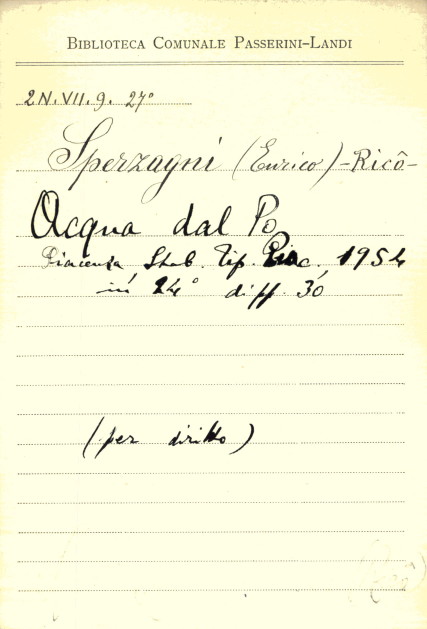 BIBLIOTECA COMUNALE PASSERINI-LANDI
2N.VII.9. 27°
Sperzagni (Enrico) - Ricô -
Acqua dal Po
Piacenza, Stab. Tip. Piac., 1954
in 24° diff. 30
(per diritto)